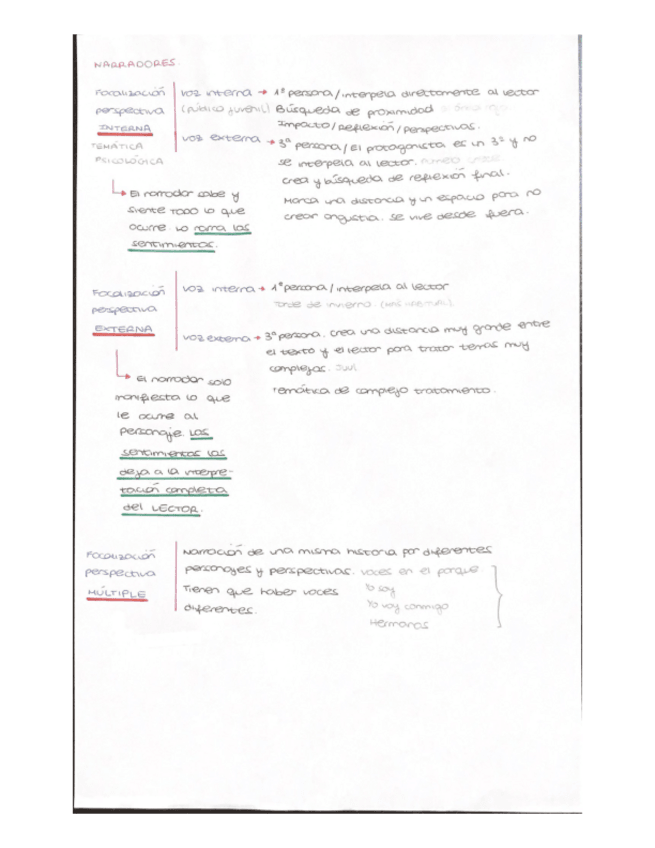 NARRADORES.
Focalización
perspectiva
INTERNA
TEMÁTICA
PSICOLÓGICA
voz interna → 1ª persona / interpela directamente al lector
(público juvenil) Búsqueda de proximidad
Impacto / Reflexión / perspectivas.
voz externa → 3ª persona / El protagonista es un 3º y no
se interpela al lector.
crea y búsqueda de reflexión final.
Marca una distancia y un espacio para no
crear angustia. Se vive desde fuera.
↳ El narrador sabe y
siente TODO lo que
ocurre. Lo narra las
sentimientos.
Focalización
perspectiva
EXTERNA
voz interna → 1ª persona / interpela al lector
Tarde de invierno. (MÁS HABITUAL)
voz externa → 3ª persona. crea una distancia muy grande entre
el texto y el lector para tratar temas muy
complejas. Juul
Temática de complejo tratamiento.
↳ El narrador solo
manifiesta lo que
le ocurre al
personaje. Los
sentimientos los
deja a la interpre-
tación completa
del LECTOR.
Focalización
perspectiva
MÚLTIPLE
Narración de una misma historia por diferentes
personajes y perspectivas. voces en el parque
Tienen que haber voces
diferentes.
Yo soy
Yo voy conmigo
Hermanos